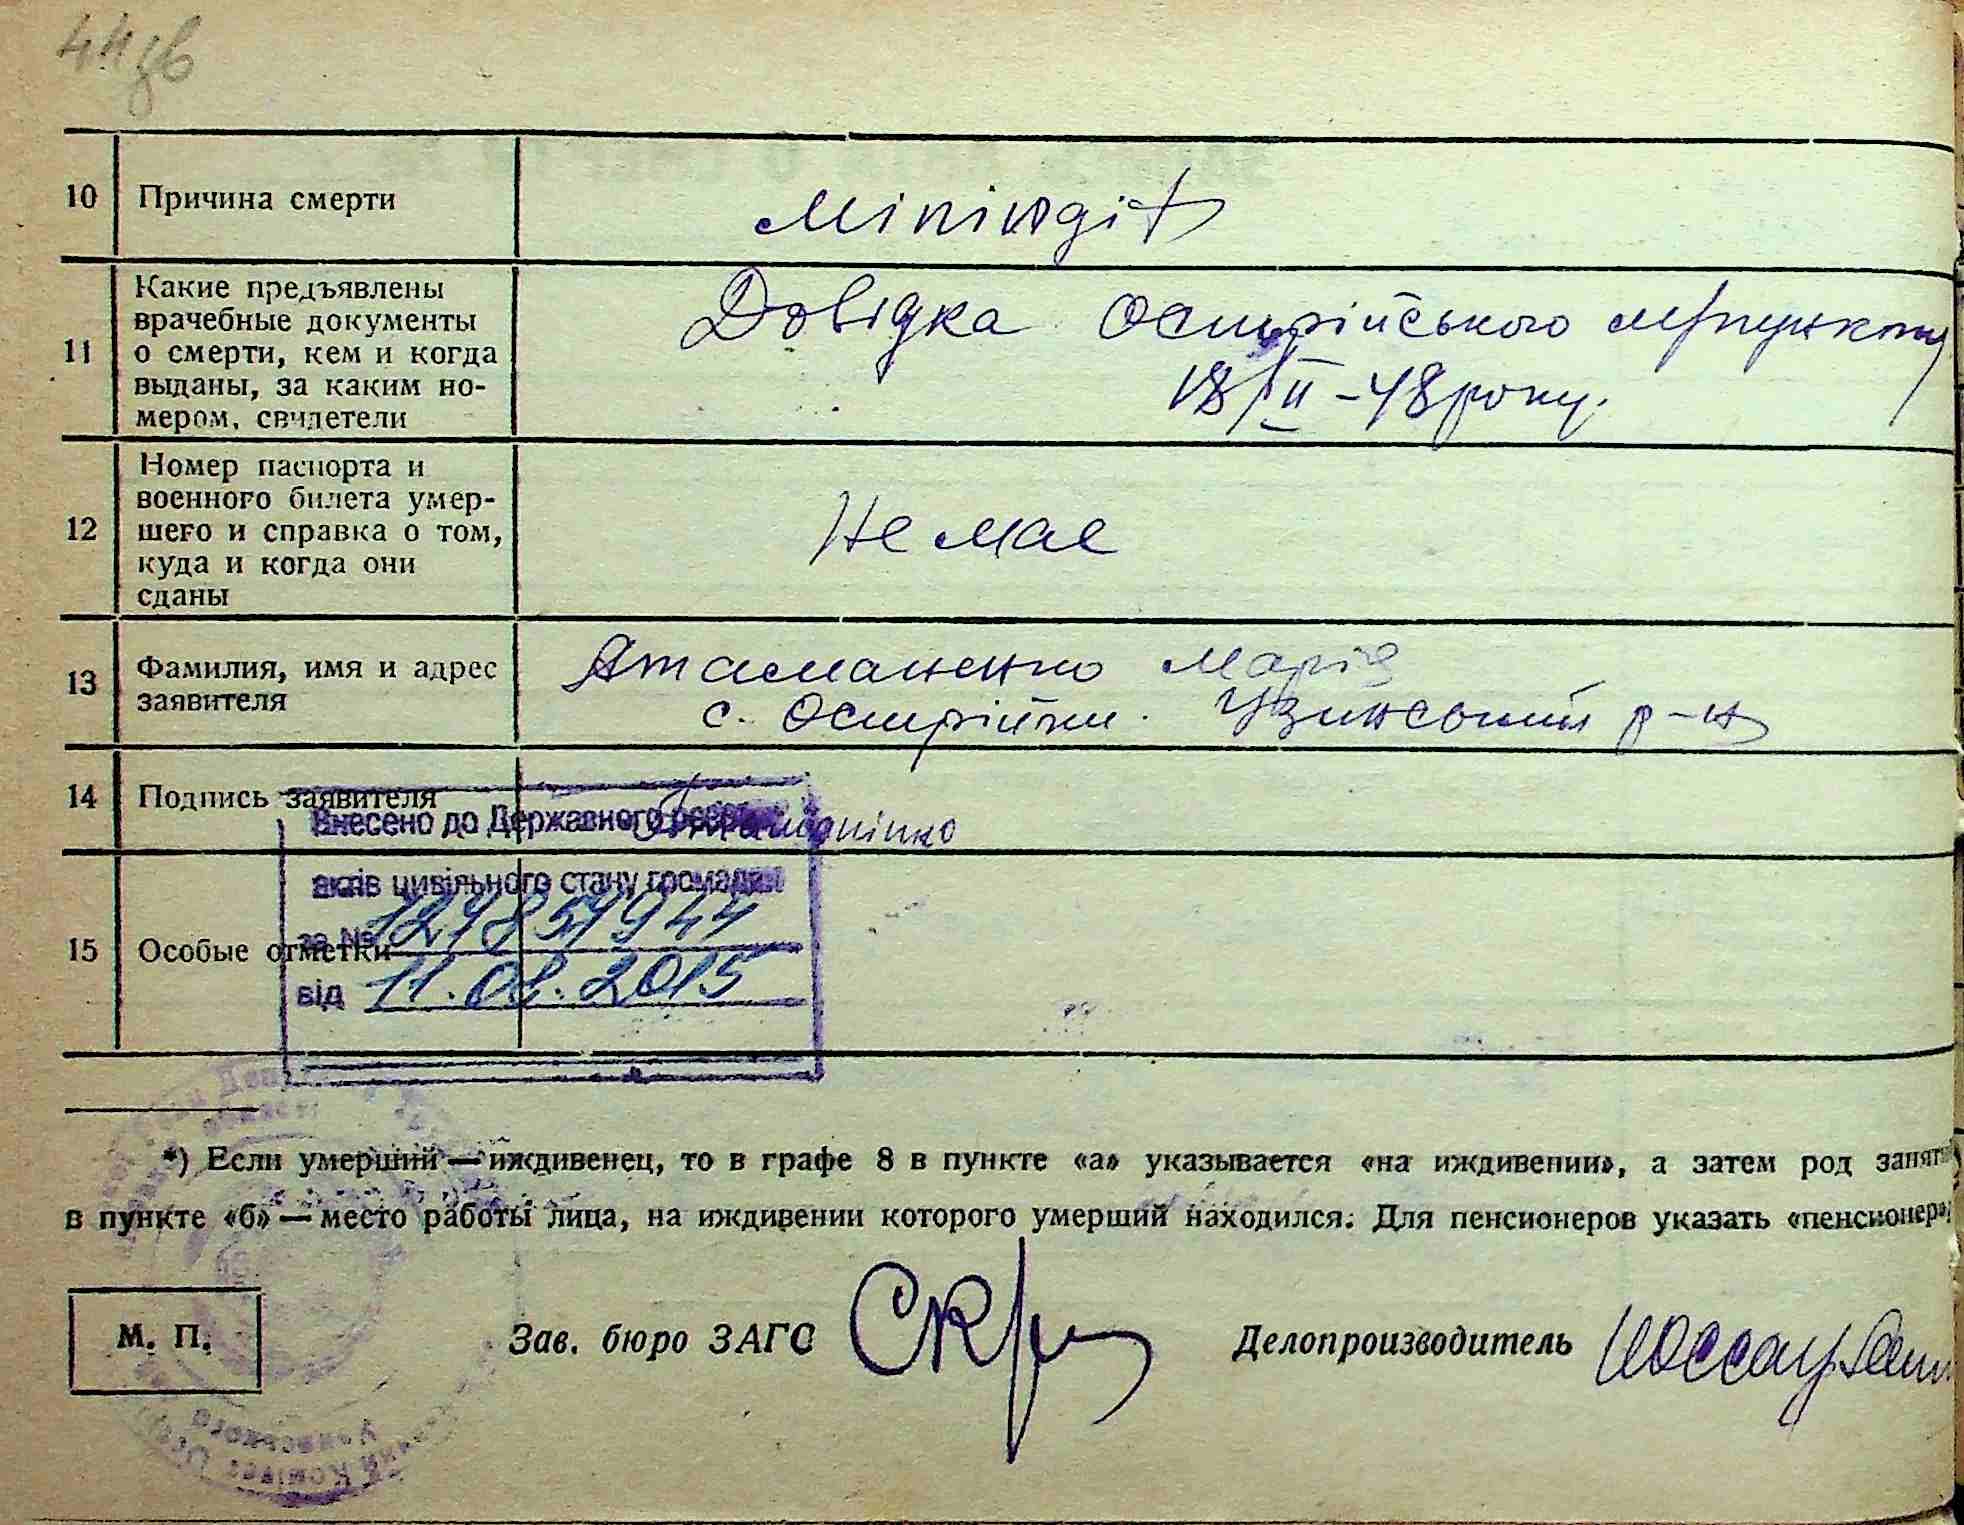 44зв
10 Причина смерти
мінінгіт
11 Какие предъявлены
врачебные документы
о смерти, кем и когда
выданы, за каким но-
мером, свидетели
Довідка Острійського медпункту
18/II-48 року.
12 Номер паспорта и
военного билета умер-
шего и справка о том,
куда и когда они
сданы
Не має
13 Фамилия, имя и адрес
заявителя
Атаманенко Марія
с. Острійки. Узинський р-н
14 Подпись заявителя
Внесено до Державного
актів цивільного стану громадян
за №
від 11.08.2015
15 Особые отметки
*) Если умерший — иждивенец, то в графе 8 в пункте «а» указывается «на иждивении», а затем род занят
в пункте «б» — место работы лица, на иждивении которого умерший находился. Для пенсионеров указать «пенсионер»
М. П.
Зав. бюро ЗАГС
Делопроизводитель